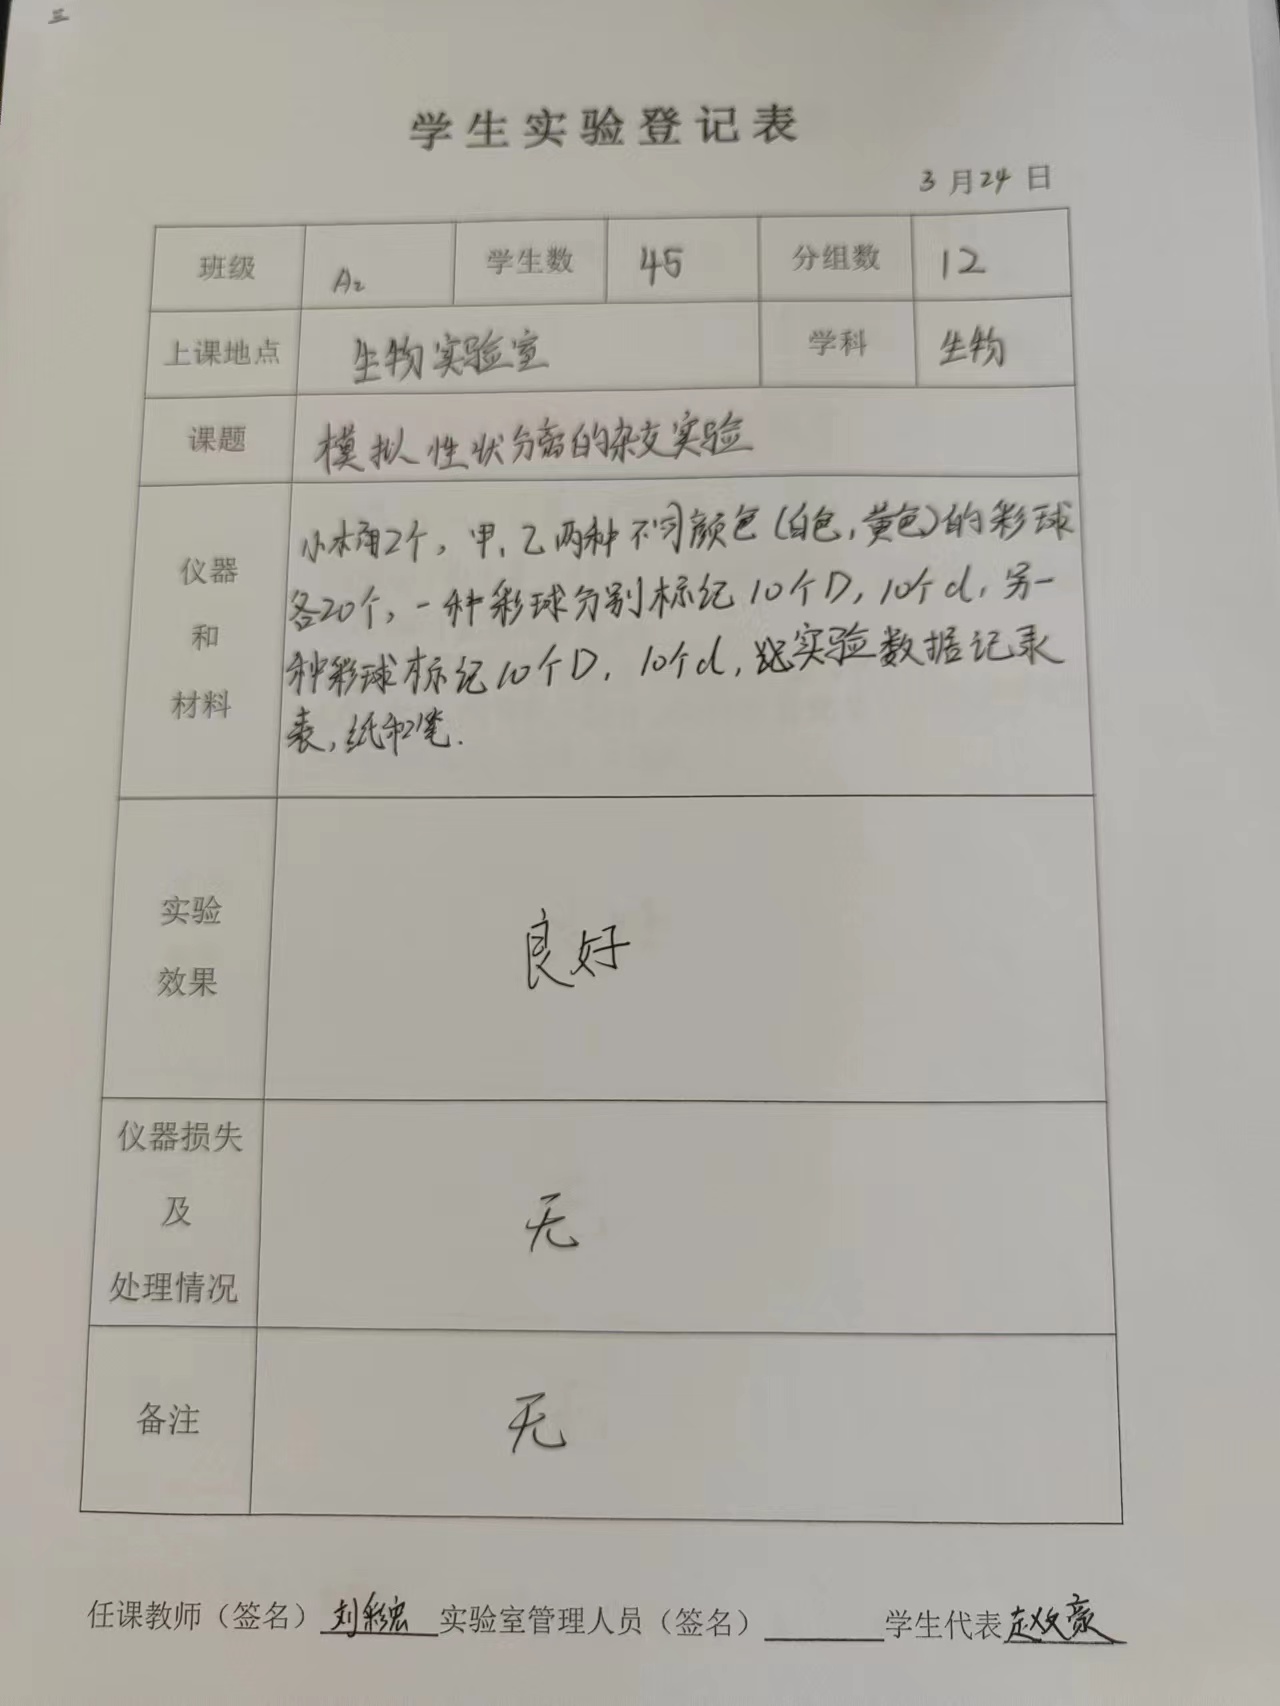 三
学生实验登记表
3月24日
班级 A2 学生数 45 分组数 12
上课地点 生物实验室 学科 生物
课题 模拟性状分离的杂交实验
仪器
和
材料
小木桶2个，甲、乙两种不同颜色（白色，黄色）的彩球
各20个，一种彩球分别标记10个D，10个d，另一
种彩球标记10个D，10个d，实验数据记录
表，纸和笔.
实验
效果
良好
仪器损失
及
处理情况
无
备注 无
任课教师（签名）刘彩宏 实验室管理人员（签名） 学生代表赵文豪